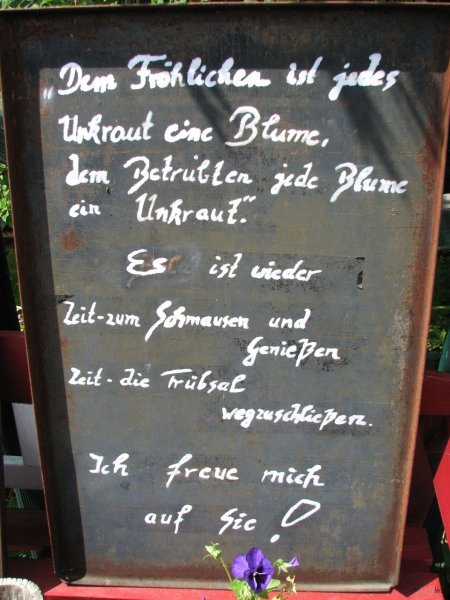 „Dem Fröhlichen ist jedes
Unkraut eine Blume,
dem Betrübten jede Blume
ein Unkraut."
Es ist wieder
Zeit-zum Schmausen und
Genießen
Zeit-die Trübsal
wegzuschließen.
Ich freue mich
auf Sie!